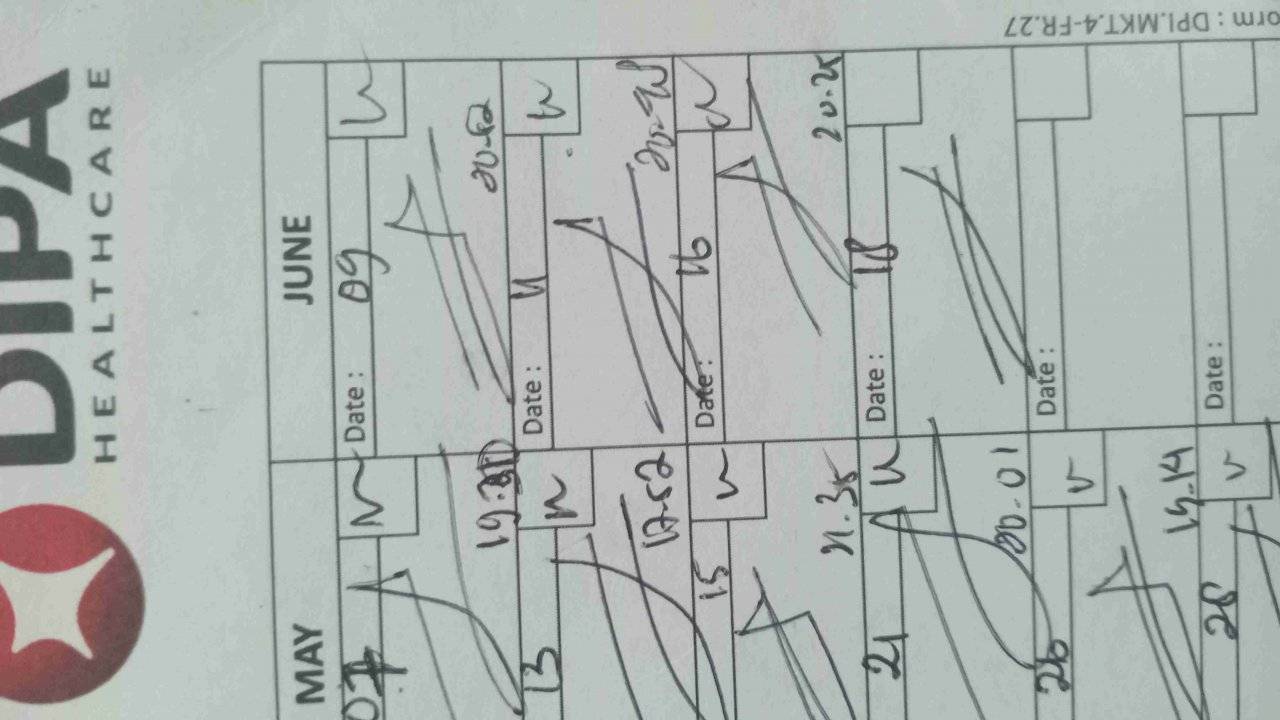 DIPA
HEALTHCARE
Form : DPI.MKT.4-FR.27
MAY
07
19.
13
17.52
15
21.35
21
20.01
26
19.14
28
JUNE
Date : 09
20.52
Date : 11
20.45
Date : 16
20.25
Date : 18
Date :
Date :